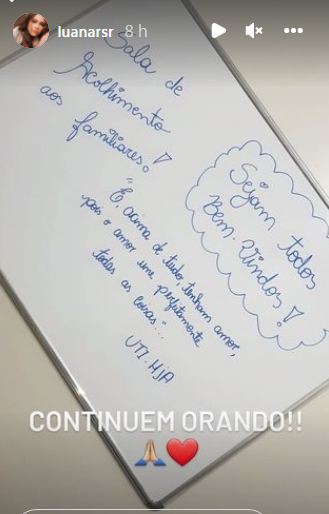 luanarsr 8 h
Sala de
Acolhimento
aos familiares!
Sejam todos
Bem-Vindos!
"E, acima de tudo, tenham amor,
pois o amor une perfeitamente
todas as coisas..."
UTI-HJA
CONTINUEM ORANDO!!